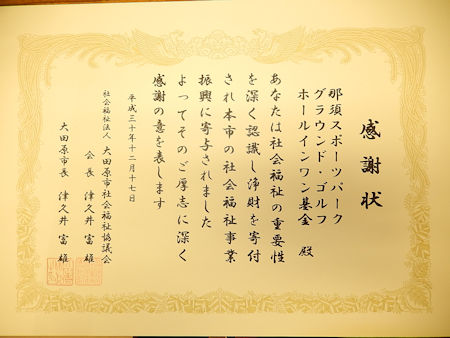 感謝状
那須スポーツパーク
グラウンド・ゴルフ
ホールインワン基金 殿
あなたは社会福祉の重要性
を深く認識し浄財を寄付
され本市の社会福祉事業
振興に寄与されました
よってそのご厚志に深く
感謝の意を表します
平成三十年十二月十七日
社会福祉法人 大田原市社会福祉協議会
会長 津久井富雄
大田原市長 津久井富雄